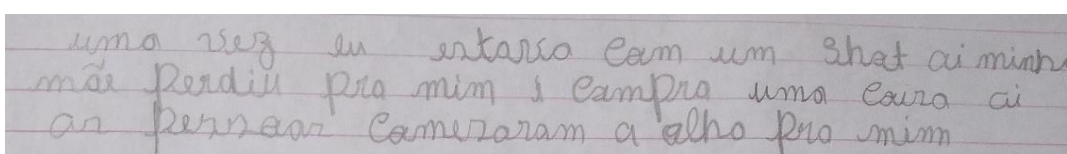 uma vez eu estava com um shot ai minh
mãe perdiu pra mim i compra uma cousa ai
as pessoas comesaram a olho pro mim